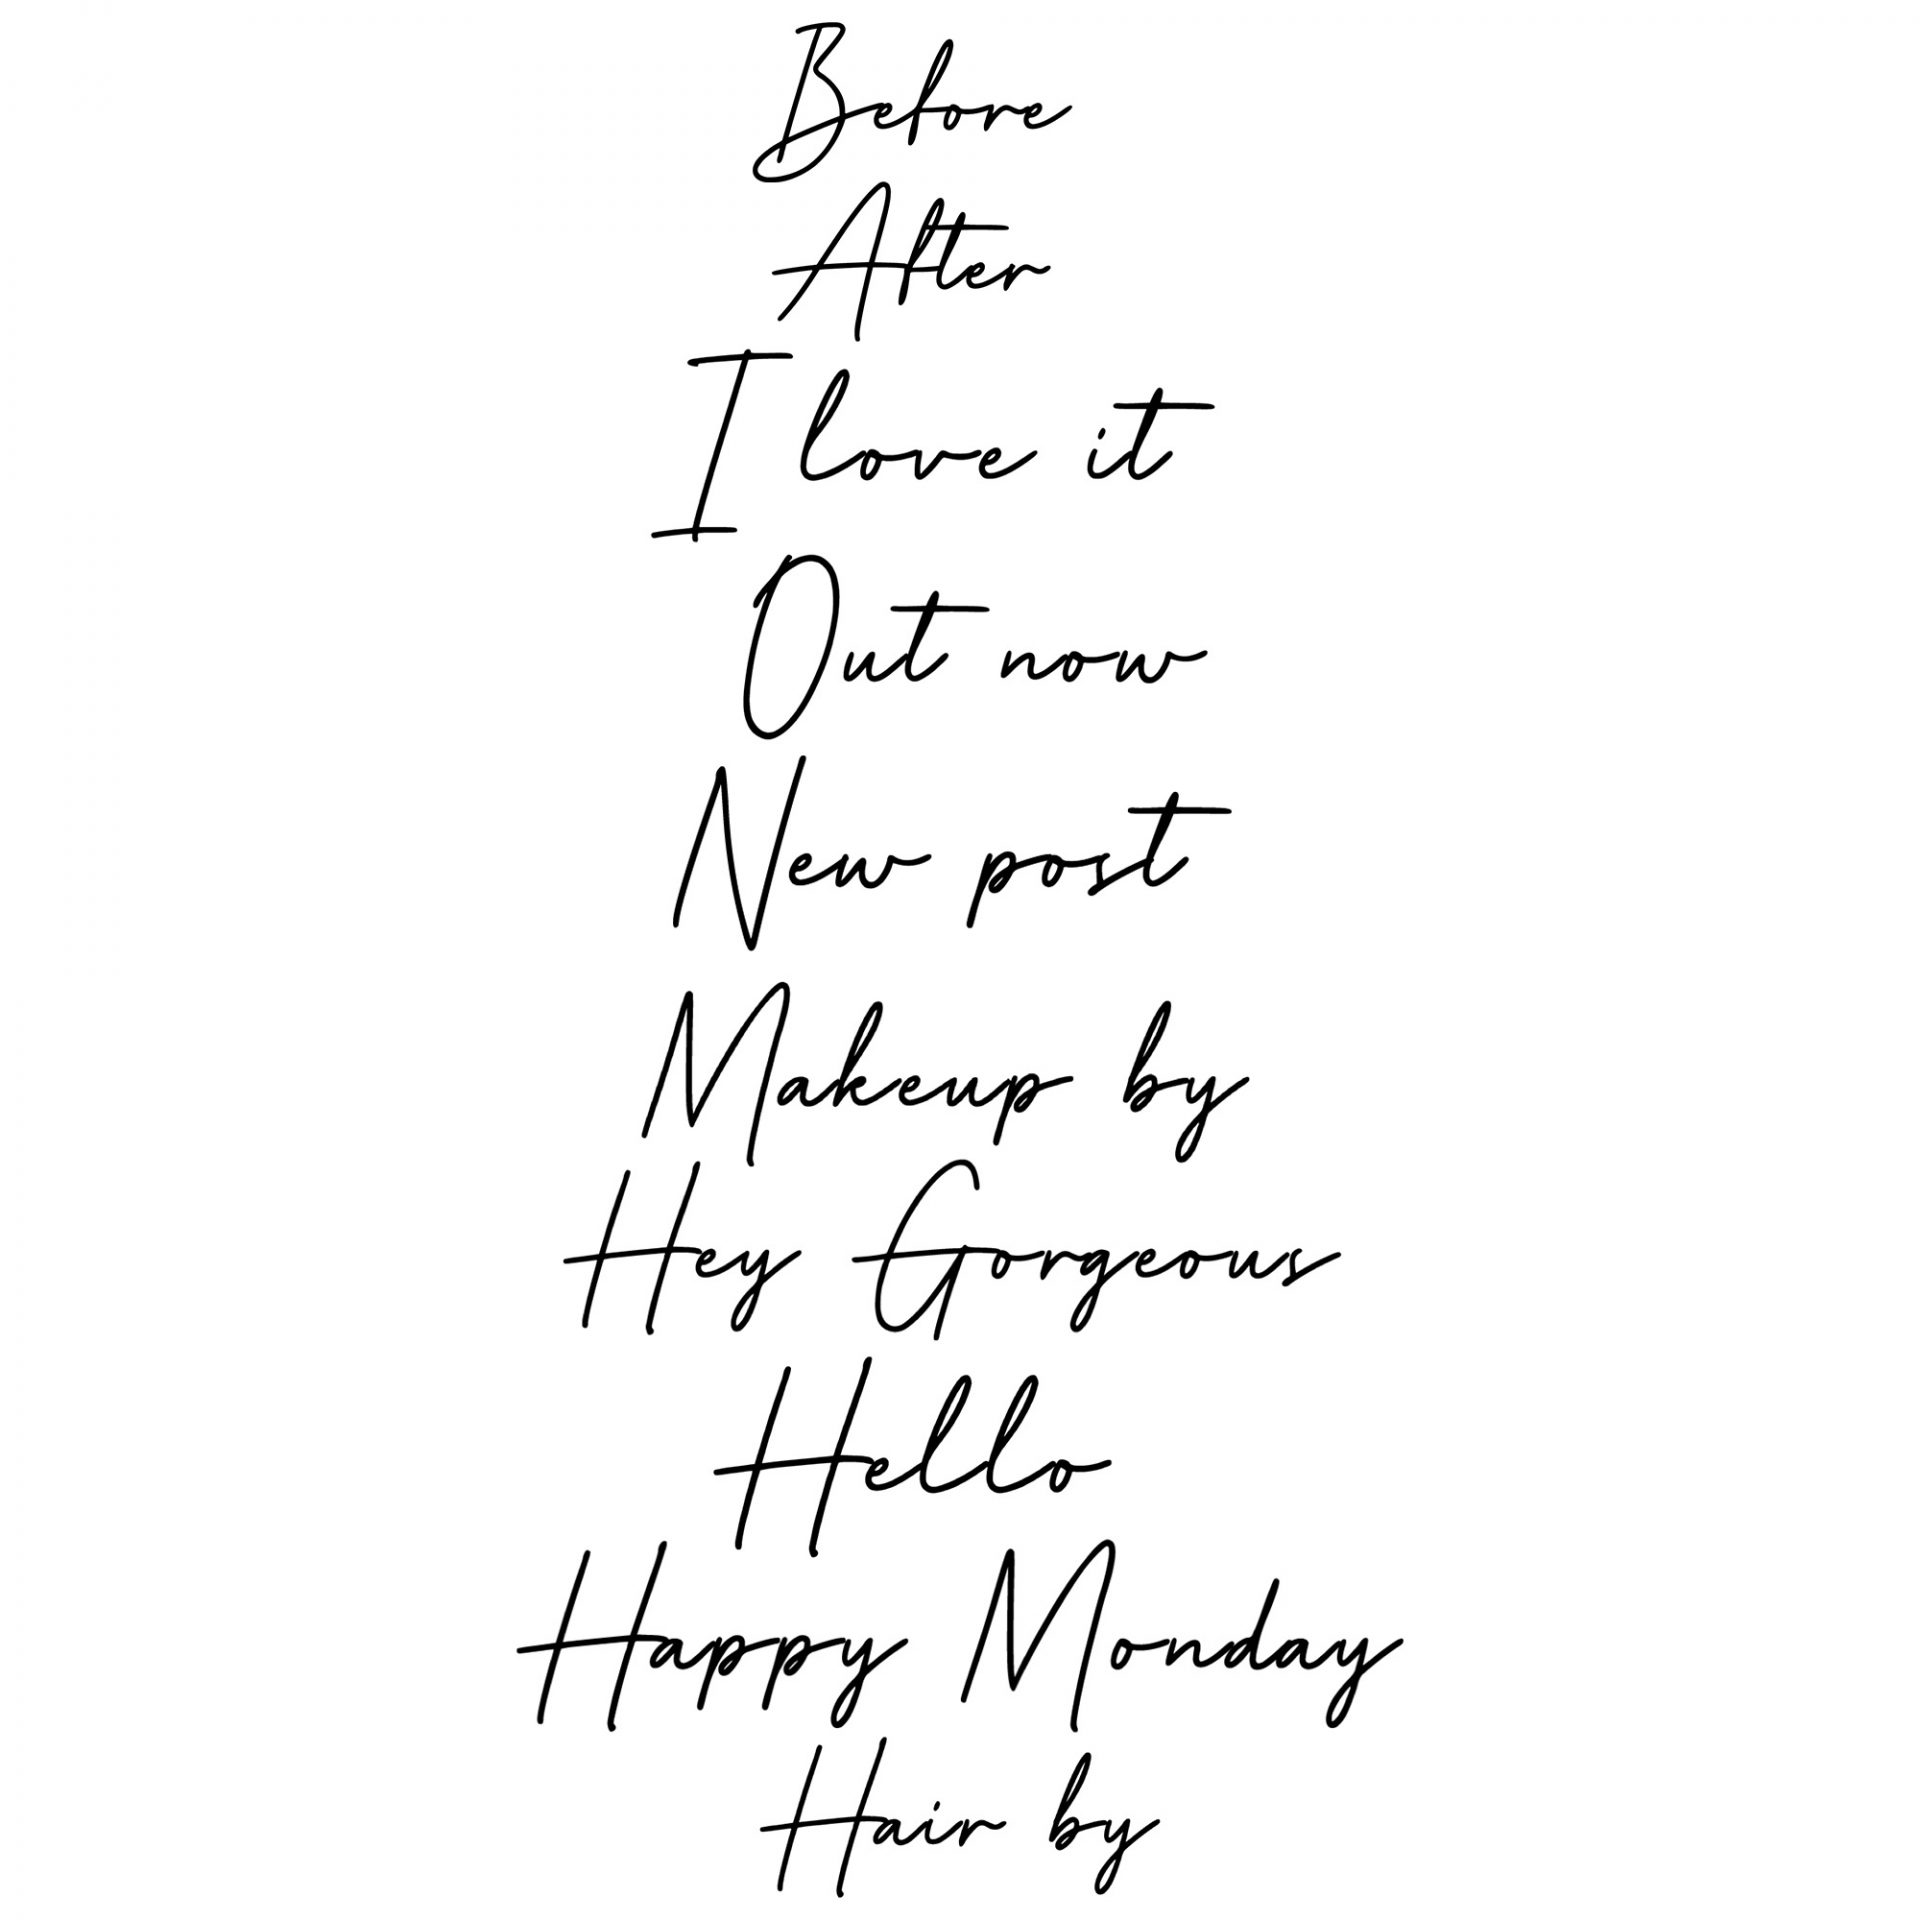 Before
After
I love it
Out now
New post
Makeup by
Hey Gorgeous
Hello
Happy Monday
Hair by